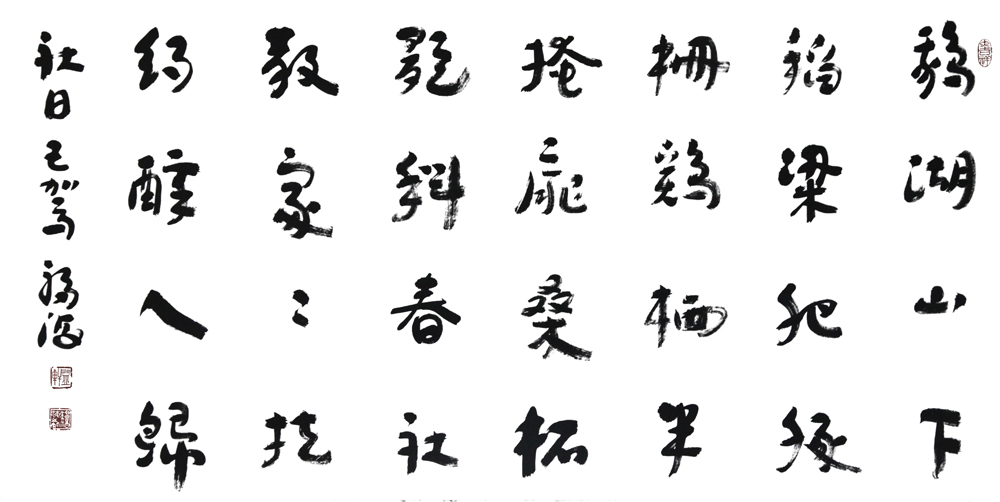 鵝湖山下
稻粱肥豚
柵鷄栖半
掩扉桑柘
影斜春社
散家〻扶
得醉人歸
社日 王駕